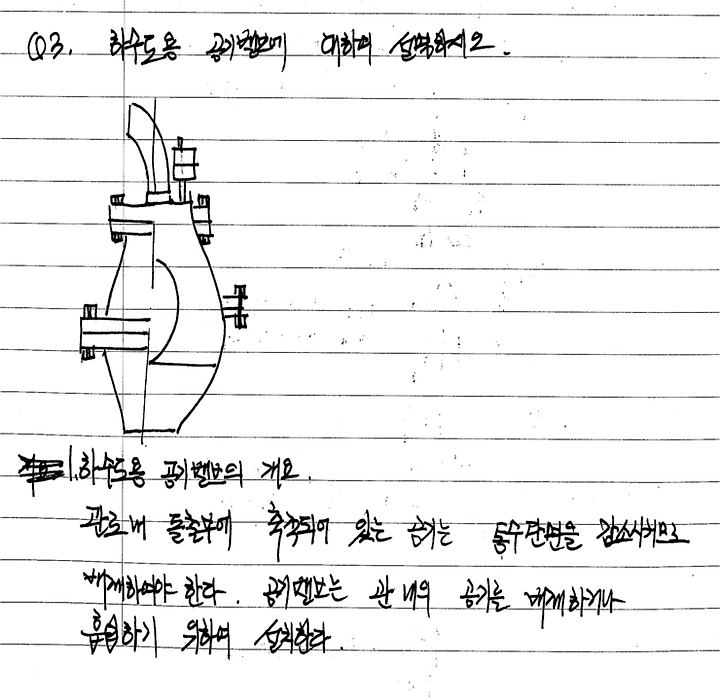 Q3. 하수도용 공기밸브에 대하여 설명하시오.
1. 하수도용 공기밸브의 개요.
관로내 돌출부에 축적되어 있는 공기는 통수단면을 감소시키므로
배제하여야 한다. 공기밸브는 관내의 공기를 배제하거나
흡입하기 위하여 설치한다.